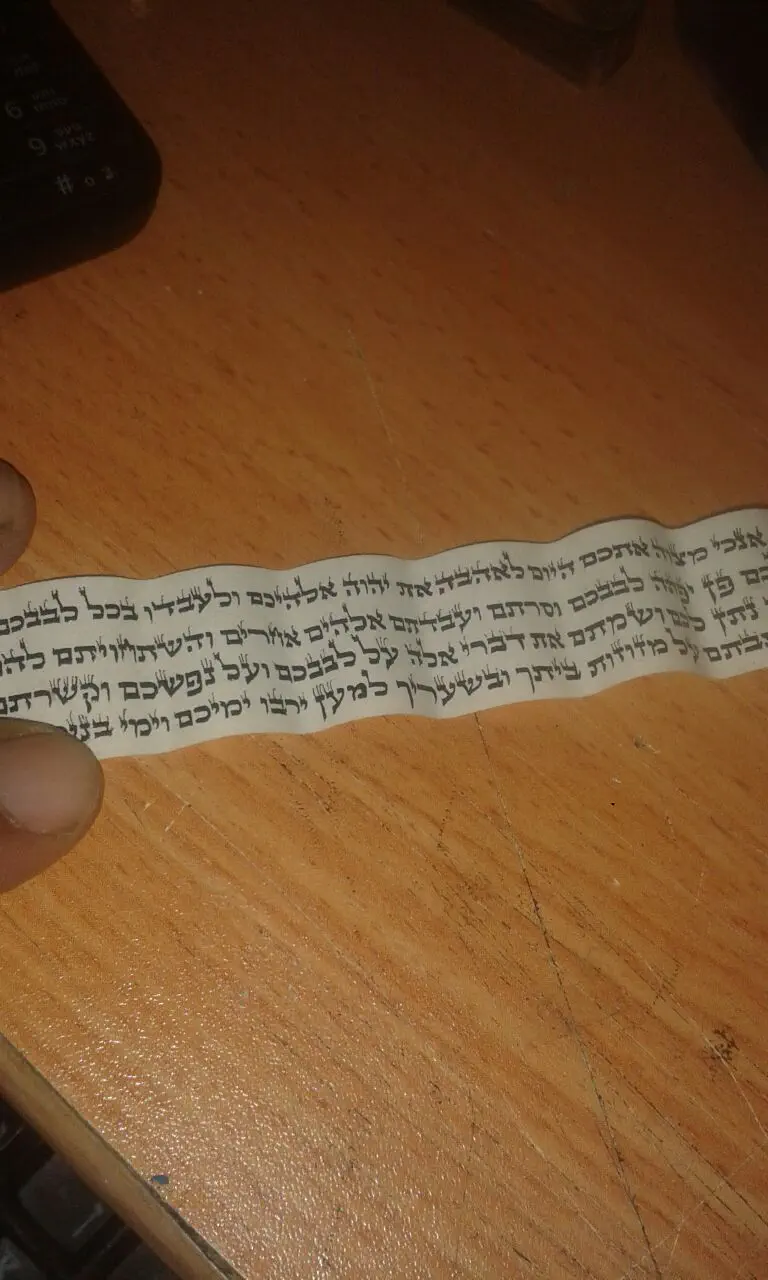 6
9 WXYZ
#
אנכי מצוה אתכם היום לאהבה את יהוה אלהיכם ולעבדו בכל לבבכם
פן יפתה לבבכם וסרתם ועבדתם אלהים אחרים והשתחויתם
נתן לכם ושמתם את דברי אלה על לבבכם ועל נפשכם וקשרתם
על מזוזות ביתך ובשעריך למען ירבו ימיכם וימי